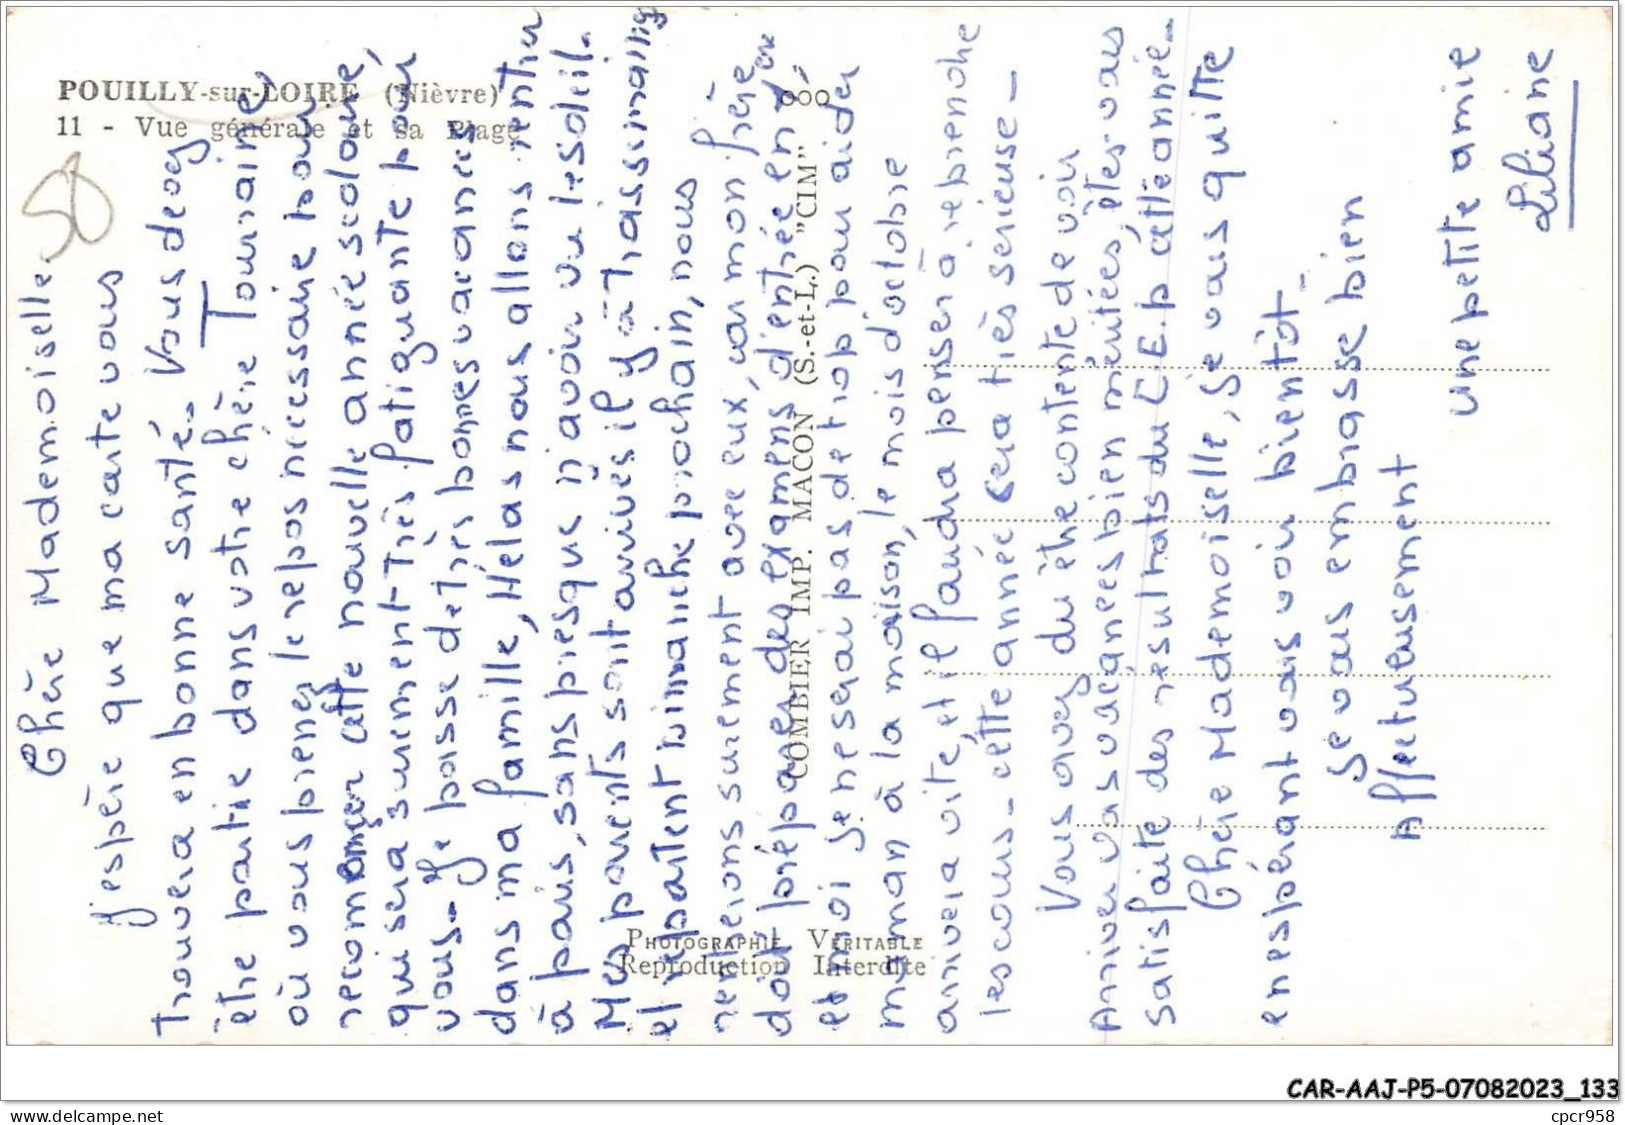 POUILLY-sur-LOIRE (Nièvre)
11 - Vue générale et sa Plage
58
Chère Mademoiselle
J'espère que ma carte vous
trouvera en bonne santé - Vous devez
être partie dans votre chère Touraine
où vous prenez le repos nécessaire pour
recommencer cette nouvelle année scolaire,
qui sera surement très fatiguante pour
vous - Je passe de très bonnes vacances
dans ma famille, Hélas nous allons rentrer
à paris, sans presque n'avoir vu le soleil.
Mes parents sont arrivés il y à trois semaines
et repartent dimanche prochain, nous
rentrerons surement avec eux, car mon frère
doit préparer des examens d'entrée en 6ère
et moi je ne serai pas de trop pour aider
maman à la maison, le mois d'octobre
arrivera vite, et il faudra penser à reprendre
les cours - cette année sera très serieuse -
Vous avez du être contente de voir
Arriver vos vacances bien méritées, êtes-vous
satisfaite des résultats du C.E.P cette année -
Chère Mademoiselle, Je vous quitte
en espérant vous voir bientôt -
Je vous embrasse bien
Affectueusement
une petite amie
Liliane
PHOTOGRAPHIE VÉRITABLE
Reproduction Interdite
COMBIER IMP. MACON (S.-et-L.) "CIM"
CAR-AAJ-P5-07082023_133
www.delcampe.net
cpcr958